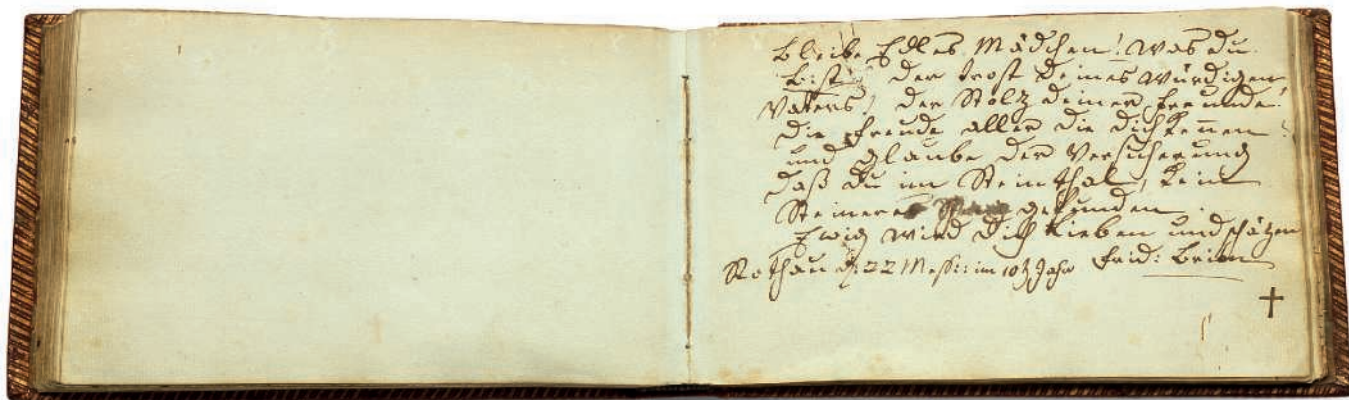 bleibe Edles Mädchen! was du
bist, der trost deines würdigen
Vaters! der Stolz deiner freunde!
die freude aller die dich kennen!
und glaube der Versicherung
daß du im Steinthal, kein
Steinernes gefunden
Ewig wird dich lieben und schäzen
Rothau d: 22 Mess:: im 10t Jahr frid: brion